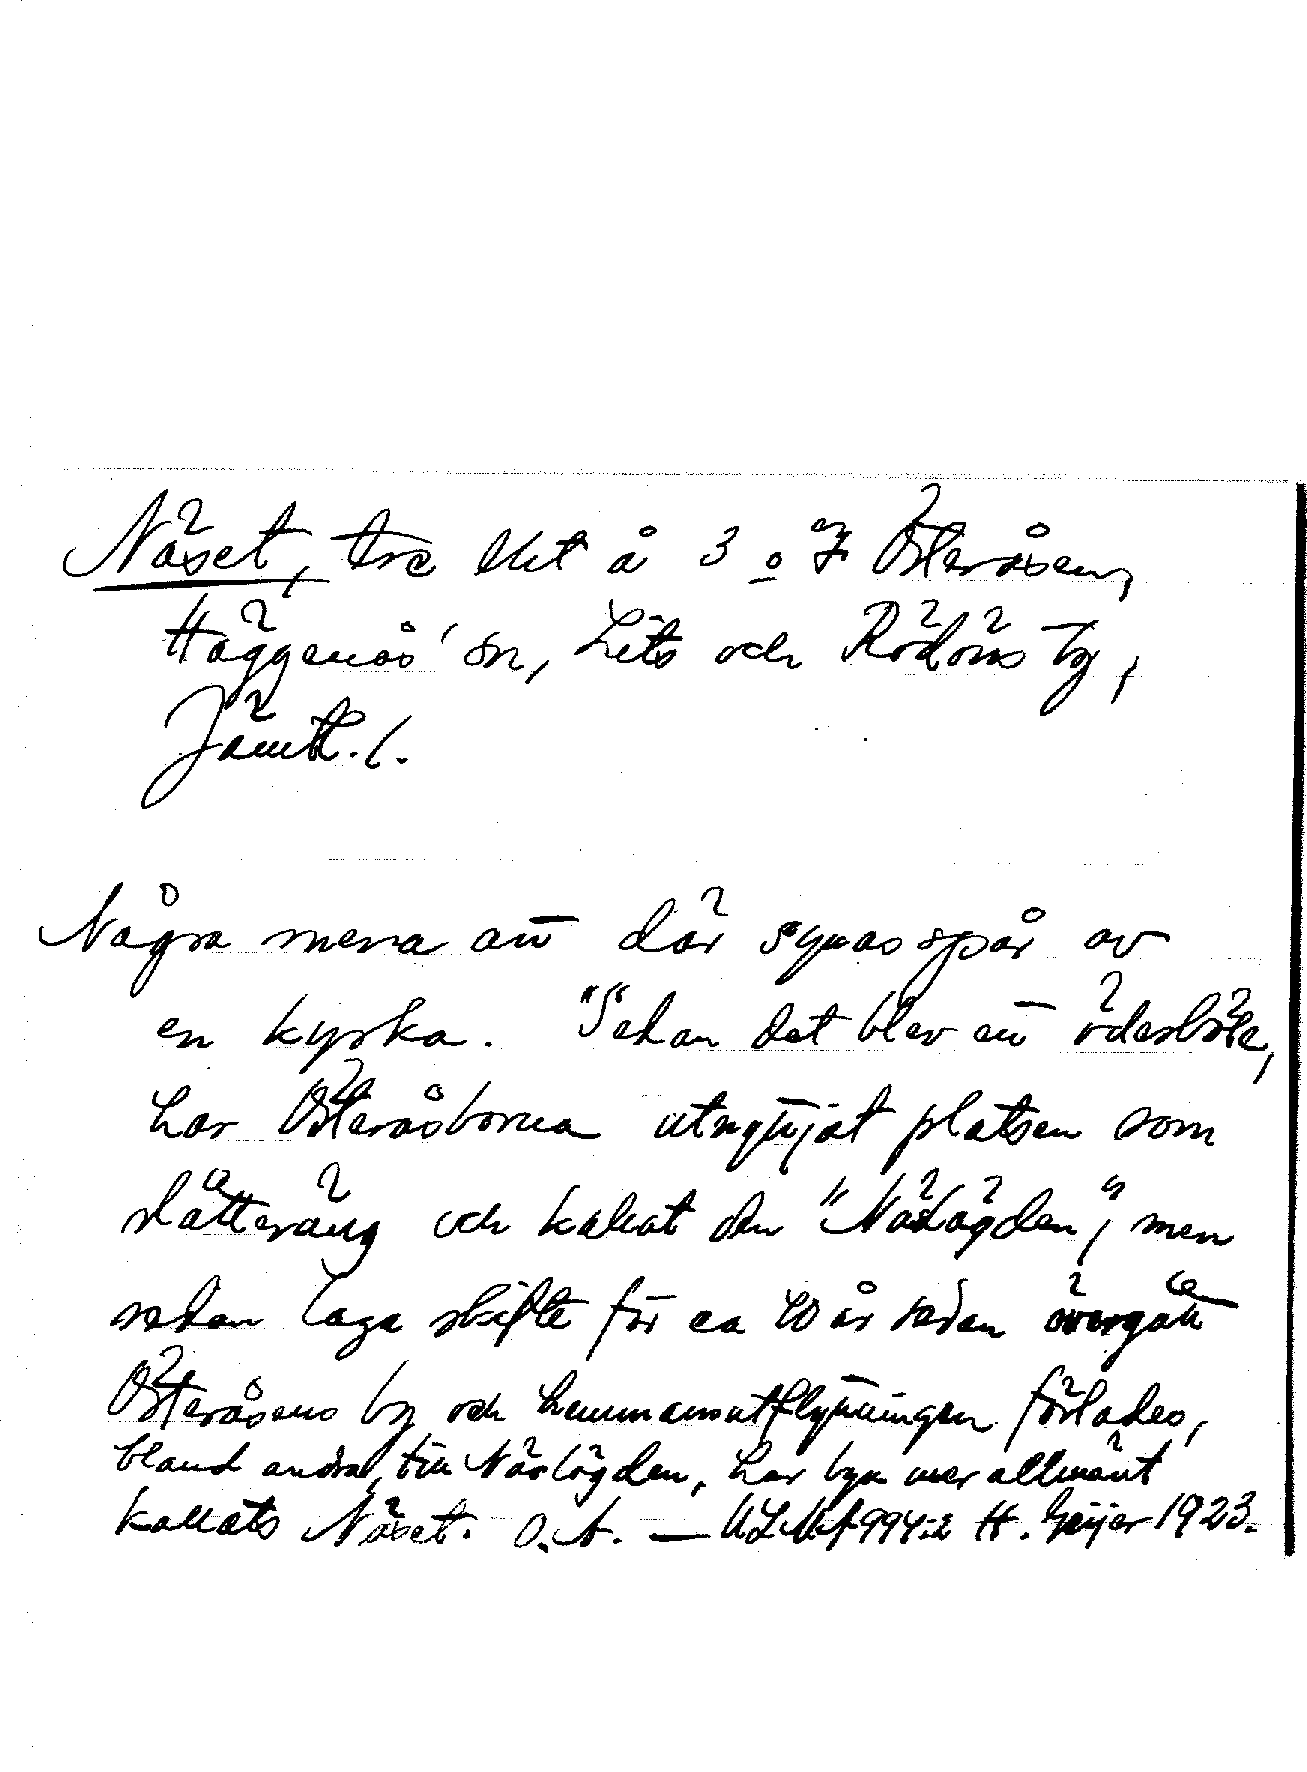 Näset, tre lht å 3 o 7 Österåsen,
Häggenås' sn, Lits och Rödöns tg,
Jämtl. l.
Några mena att där synas spår av
en kyrka. "Sedan det blev ett ödesböle,
har Österåsborna utnyttjat platsen som
slåtteräng och kallat den "Näslägden", men
sedan laga skifte för ca 40 år sedan övergått
Österåsens by och hemmansutflyttningen förlades,
bland andra, till Näslägden, har byn mer allmänt
kallats Näset. O.A. — ULMA 994:2 H. Geijer 1923.